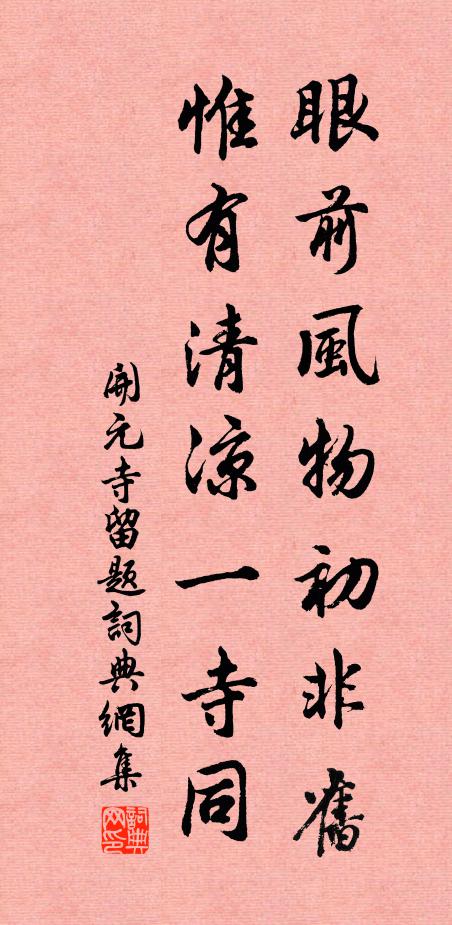 眼前風物初非舊
惟有清涼一寺同
開元寺留題詞典網集
詞典网印